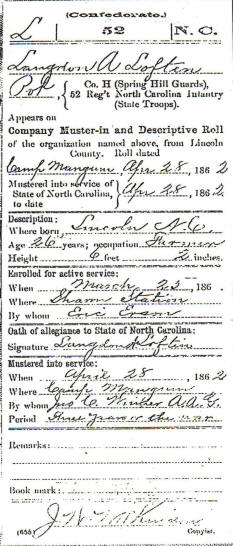 (Confederate.)
L 52 N. C.
Langdon A Loftin
Pvt., Co. H (Spring Hill Guards),
52 Reg't North Carolina Infantry
(State Troops).
Appears on
Company Muster-in and Descriptive Roll
of the organization named above, from Lincoln
County. Roll dated
Camp Mangum, Apr. 28, 1862
Mustered into service of
State of North Carolina, Apr. 28, 1862
to date
Description:
Where born, Lincoln N.C.
Age 26 years; occupation Farmer
Height 6 feet 2 inches.
Enrolled for active service:
When March 23, 186 .
Where Station
By whom Eric
Oath of allegiance to State of North Carolina:
Signature Langdon Loftin
Mustered into service:
When April 28, 1862
Where Camp Mangum
By whom C. A.A.G.
Period Three years or the war
Remarks:
Book mark:
J. W.
(655) Copyist.